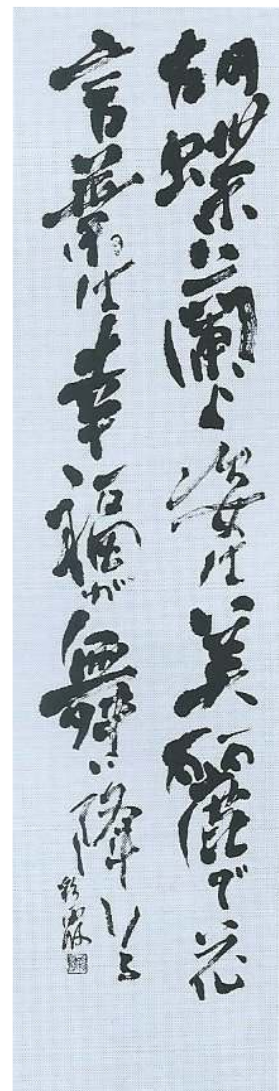 胡蝶蘭よ姿は美麗で花
言葉は幸福が舞い降りる